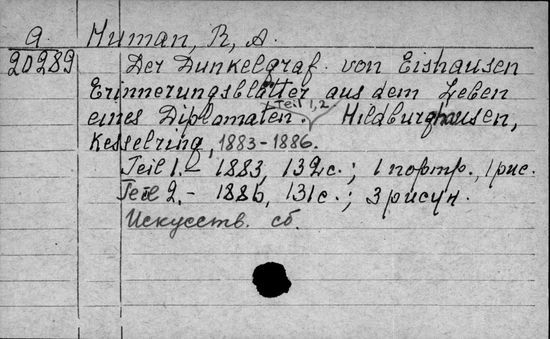 a. Human, R, A.
20289 Der Dunkelgraf von Eishausen
Erinnerungsblätter aus dem Leben
eines Diplomaten. Teil 1,2 Hildburghausen,
Kesselring, 1883-1886.
Teil 1.- 1883, 132 с.; 1 портр., 1 рис.
Teil 2.- 1886, 131 с.; 3 рисун.
Искусств. сб.